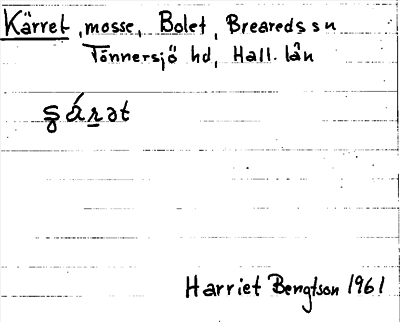 Kärret, mosse, Bolet, Breareds sn
Tönnersjö hd, Hall. län
ʂárət
Harriet Bengtson 1961